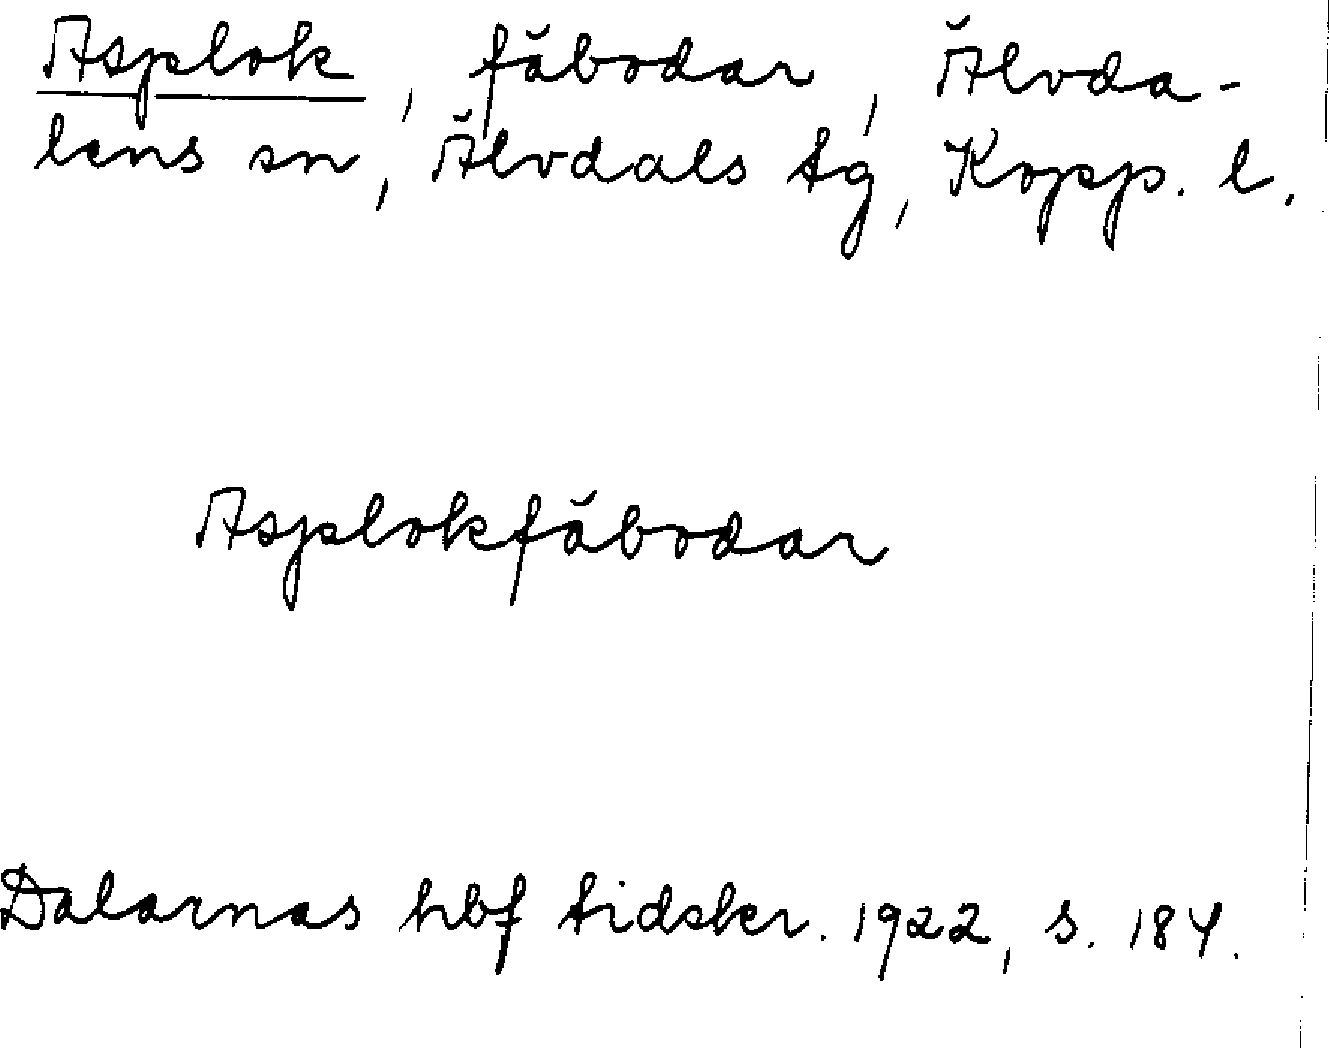 Asplok, fäbodar, Älvda-
lens sn, Älvdals tg, Kopp. l.
Asplokfäbodar
Dalarnas hbf tidskr. 1922, s. 184.